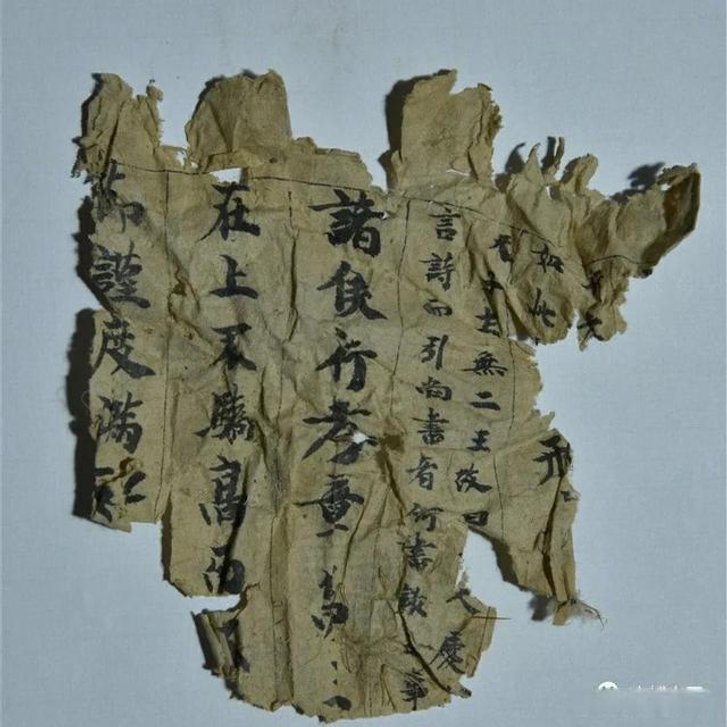 如此
刑
無二王故曰
慶
言詩而引尚書者何書錄事
諸侯行孝章第
在上不驕高而不
節謹度滿而